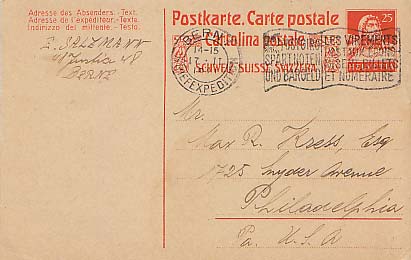 Adresse des Absenders. -Text.
Adresse de l'expéditeur.-Texte.
Indirizzo del mittente. -Testo.
E. SALZMANN
BERNE
Postkarte. Carte postale
Cartolina postale
Schweiz. Suisse. Svizzera.
25
BERN
14-15
BRIEFEXPEDITION
POSTGIRO
SPART NOTEN
UND BARGELD
LES VIREMENTS
POSTAUX
BILLETS
ET NUMÉRAIRE
Mr.
Max R. Kress, Esq
1725 Snyder Avenue
Philadelphia
Pa. U.S.A